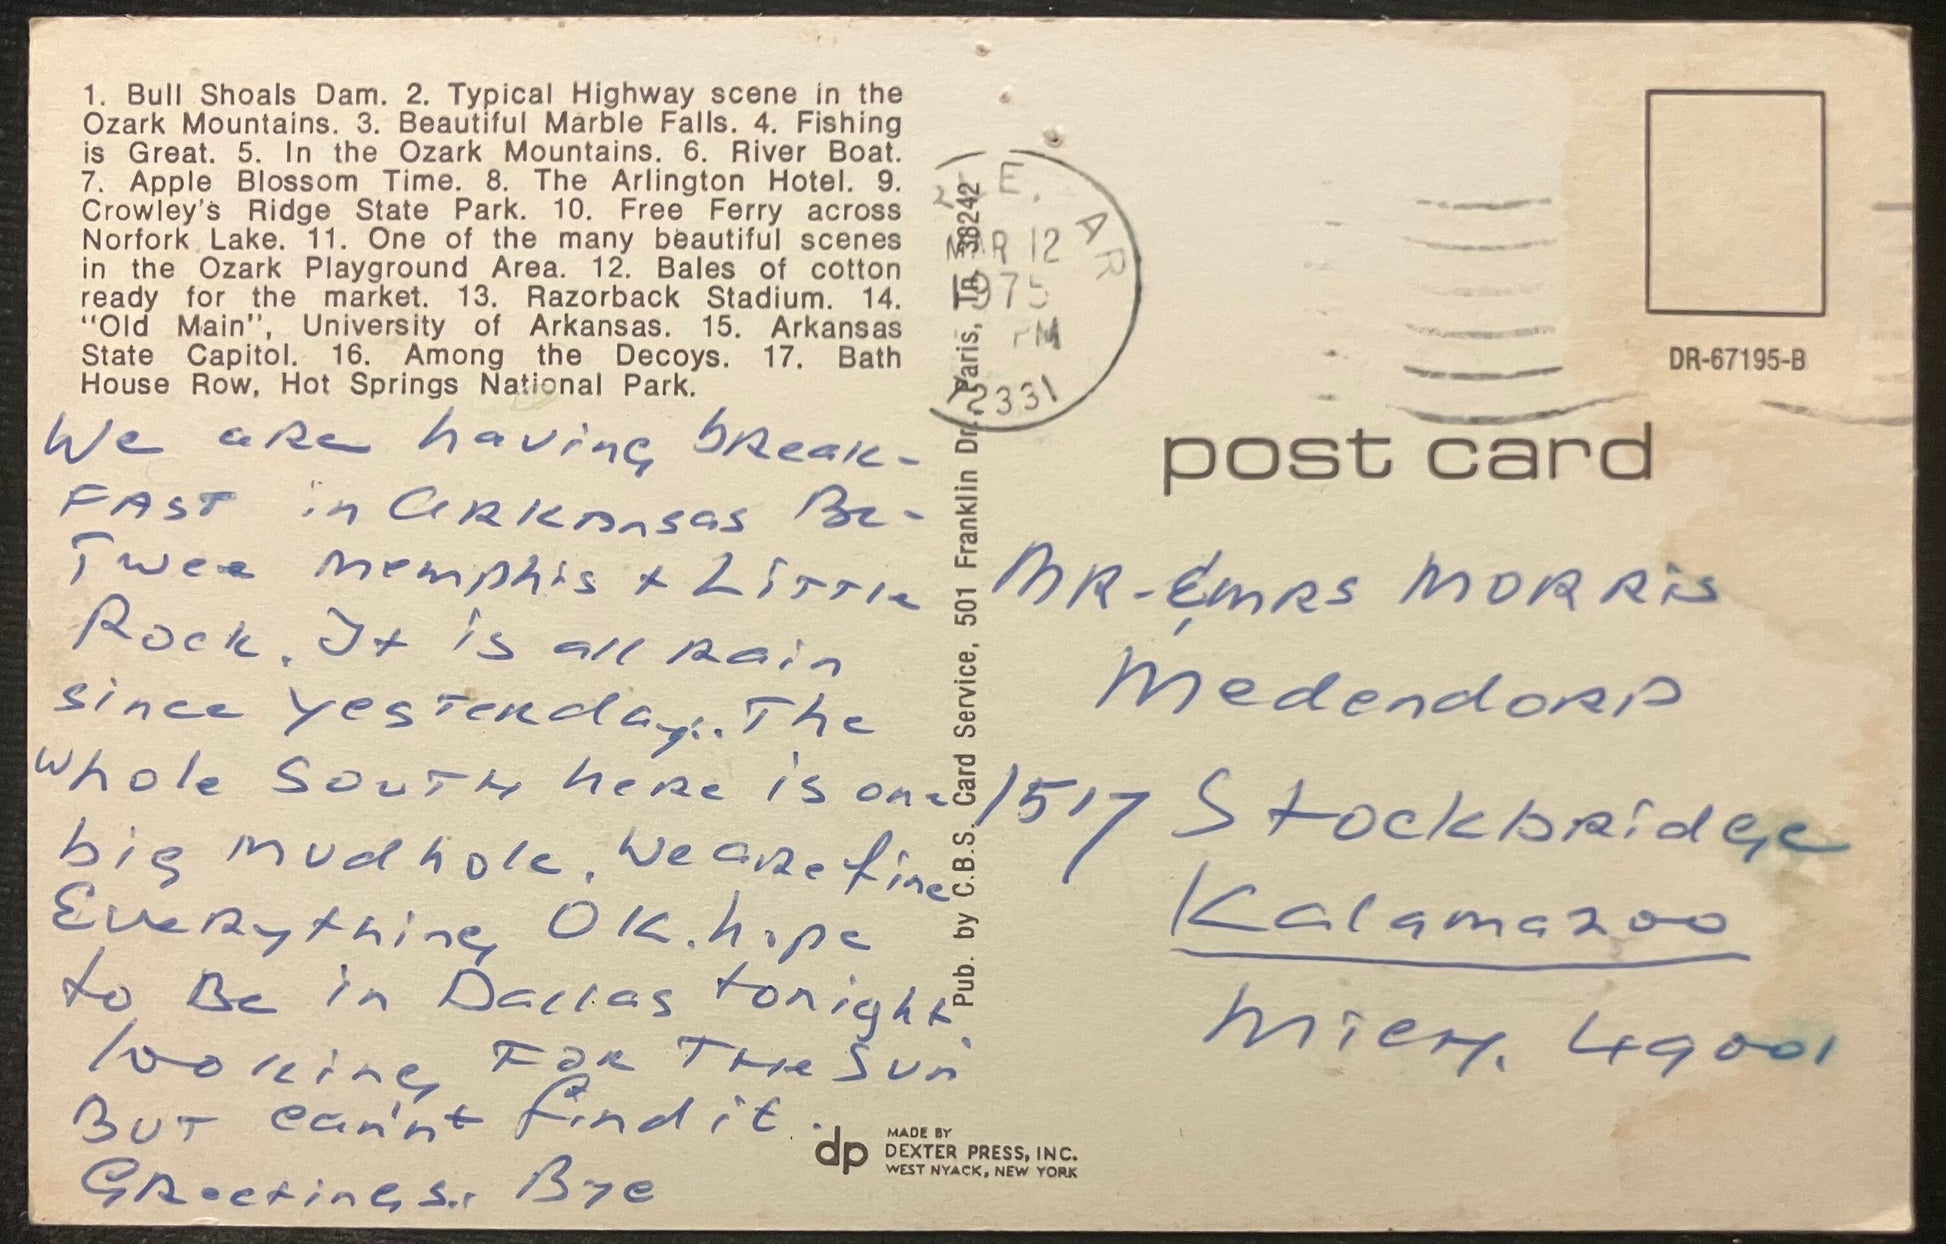 1. Bull Shoals Dam. 2. Typical Highway scene in the
Ozark Mountains. 3. Beautiful Marble Falls. 4. Fishing
is Great. 5. In the Ozark Mountains. 6. River Boat.
7. Apple Blossom Time. 8. The Arlington Hotel. 9.
Crowley's Ridge State Park. 10. Free Ferry across
Norfork Lake. 11. One of the many beautiful scenes
in the Ozark Playground Area. 12. Bales of cotton
ready for the market. 13. Razorback Stadium. 14.
"Old Main", University of Arkansas. 15. Arkansas
State Capitol. 16. Among the Decoys. 17. Bath
House Row, Hot Springs National Park.
We are having break-
FAST in Arkansas Be-
Twee Memphis + Little
Rock. It is all rain
since yesterday. The
whole South here is one
big mudhole. We are fine
Everything OK. hope
to Be in Dallas tonight
looking FOR THE Sun
BUT can'nt find it.
Greetings. Bye
Pub. by C.B.S. Card Service, 501 Franklin Dr., Paris, TN 38242
E. AR
MAR 12
1975
PM
DR-67195-B
post card
MR - & MRS MORRis
Medendorp
1517 Stockbridge
Kalamazoo
Mich. 49001
dp
MADE BY
DEXTER PRESS, INC.
WEST NYACK, NEW YORK